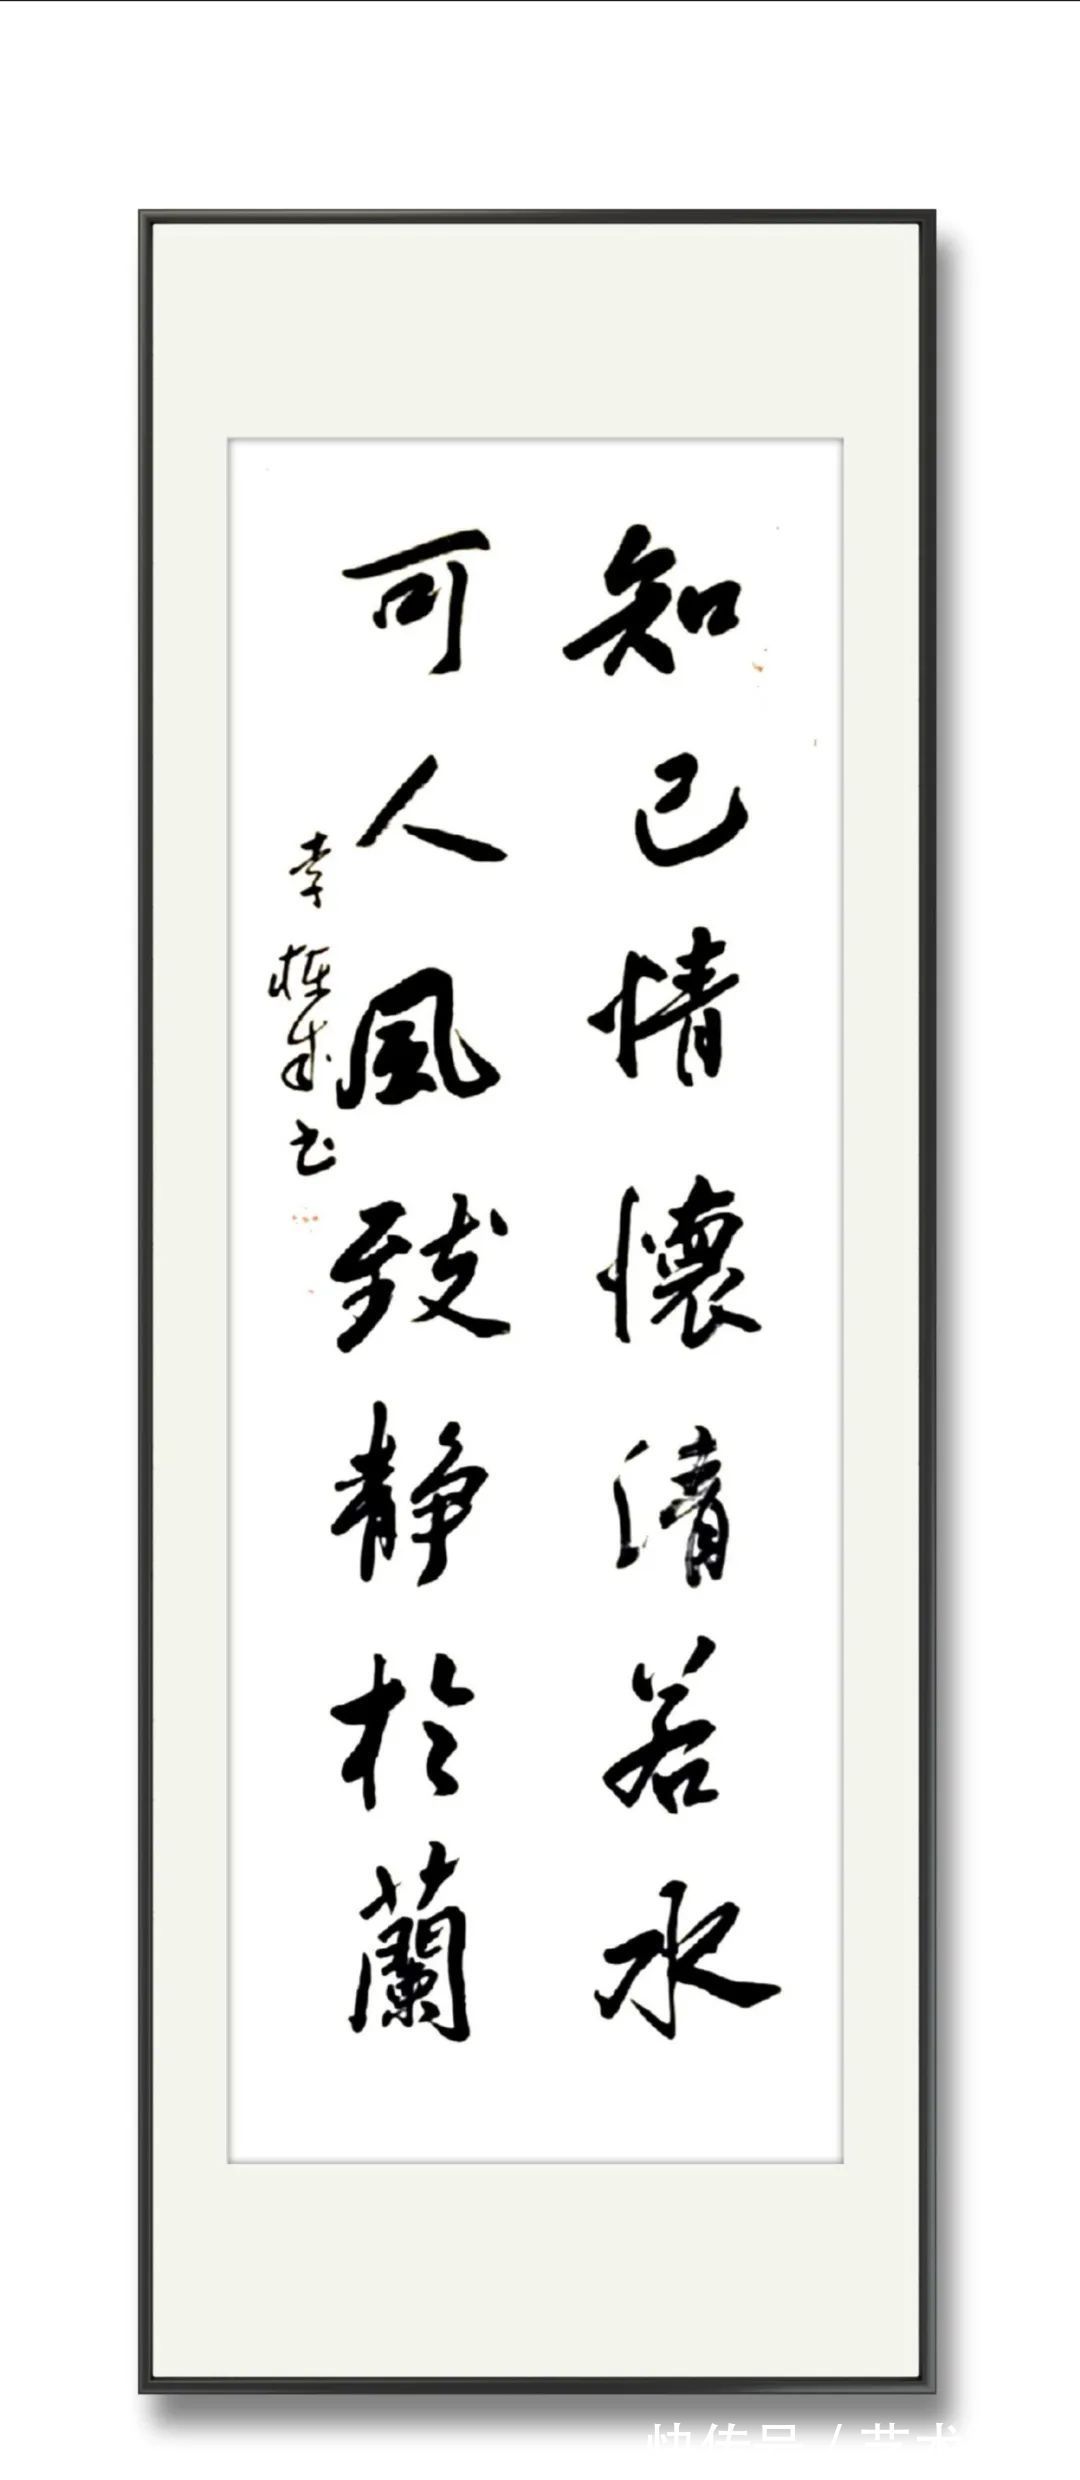 知己情懷清若水
可人風致静於蘭
李棟成书
快传号 / 艺术